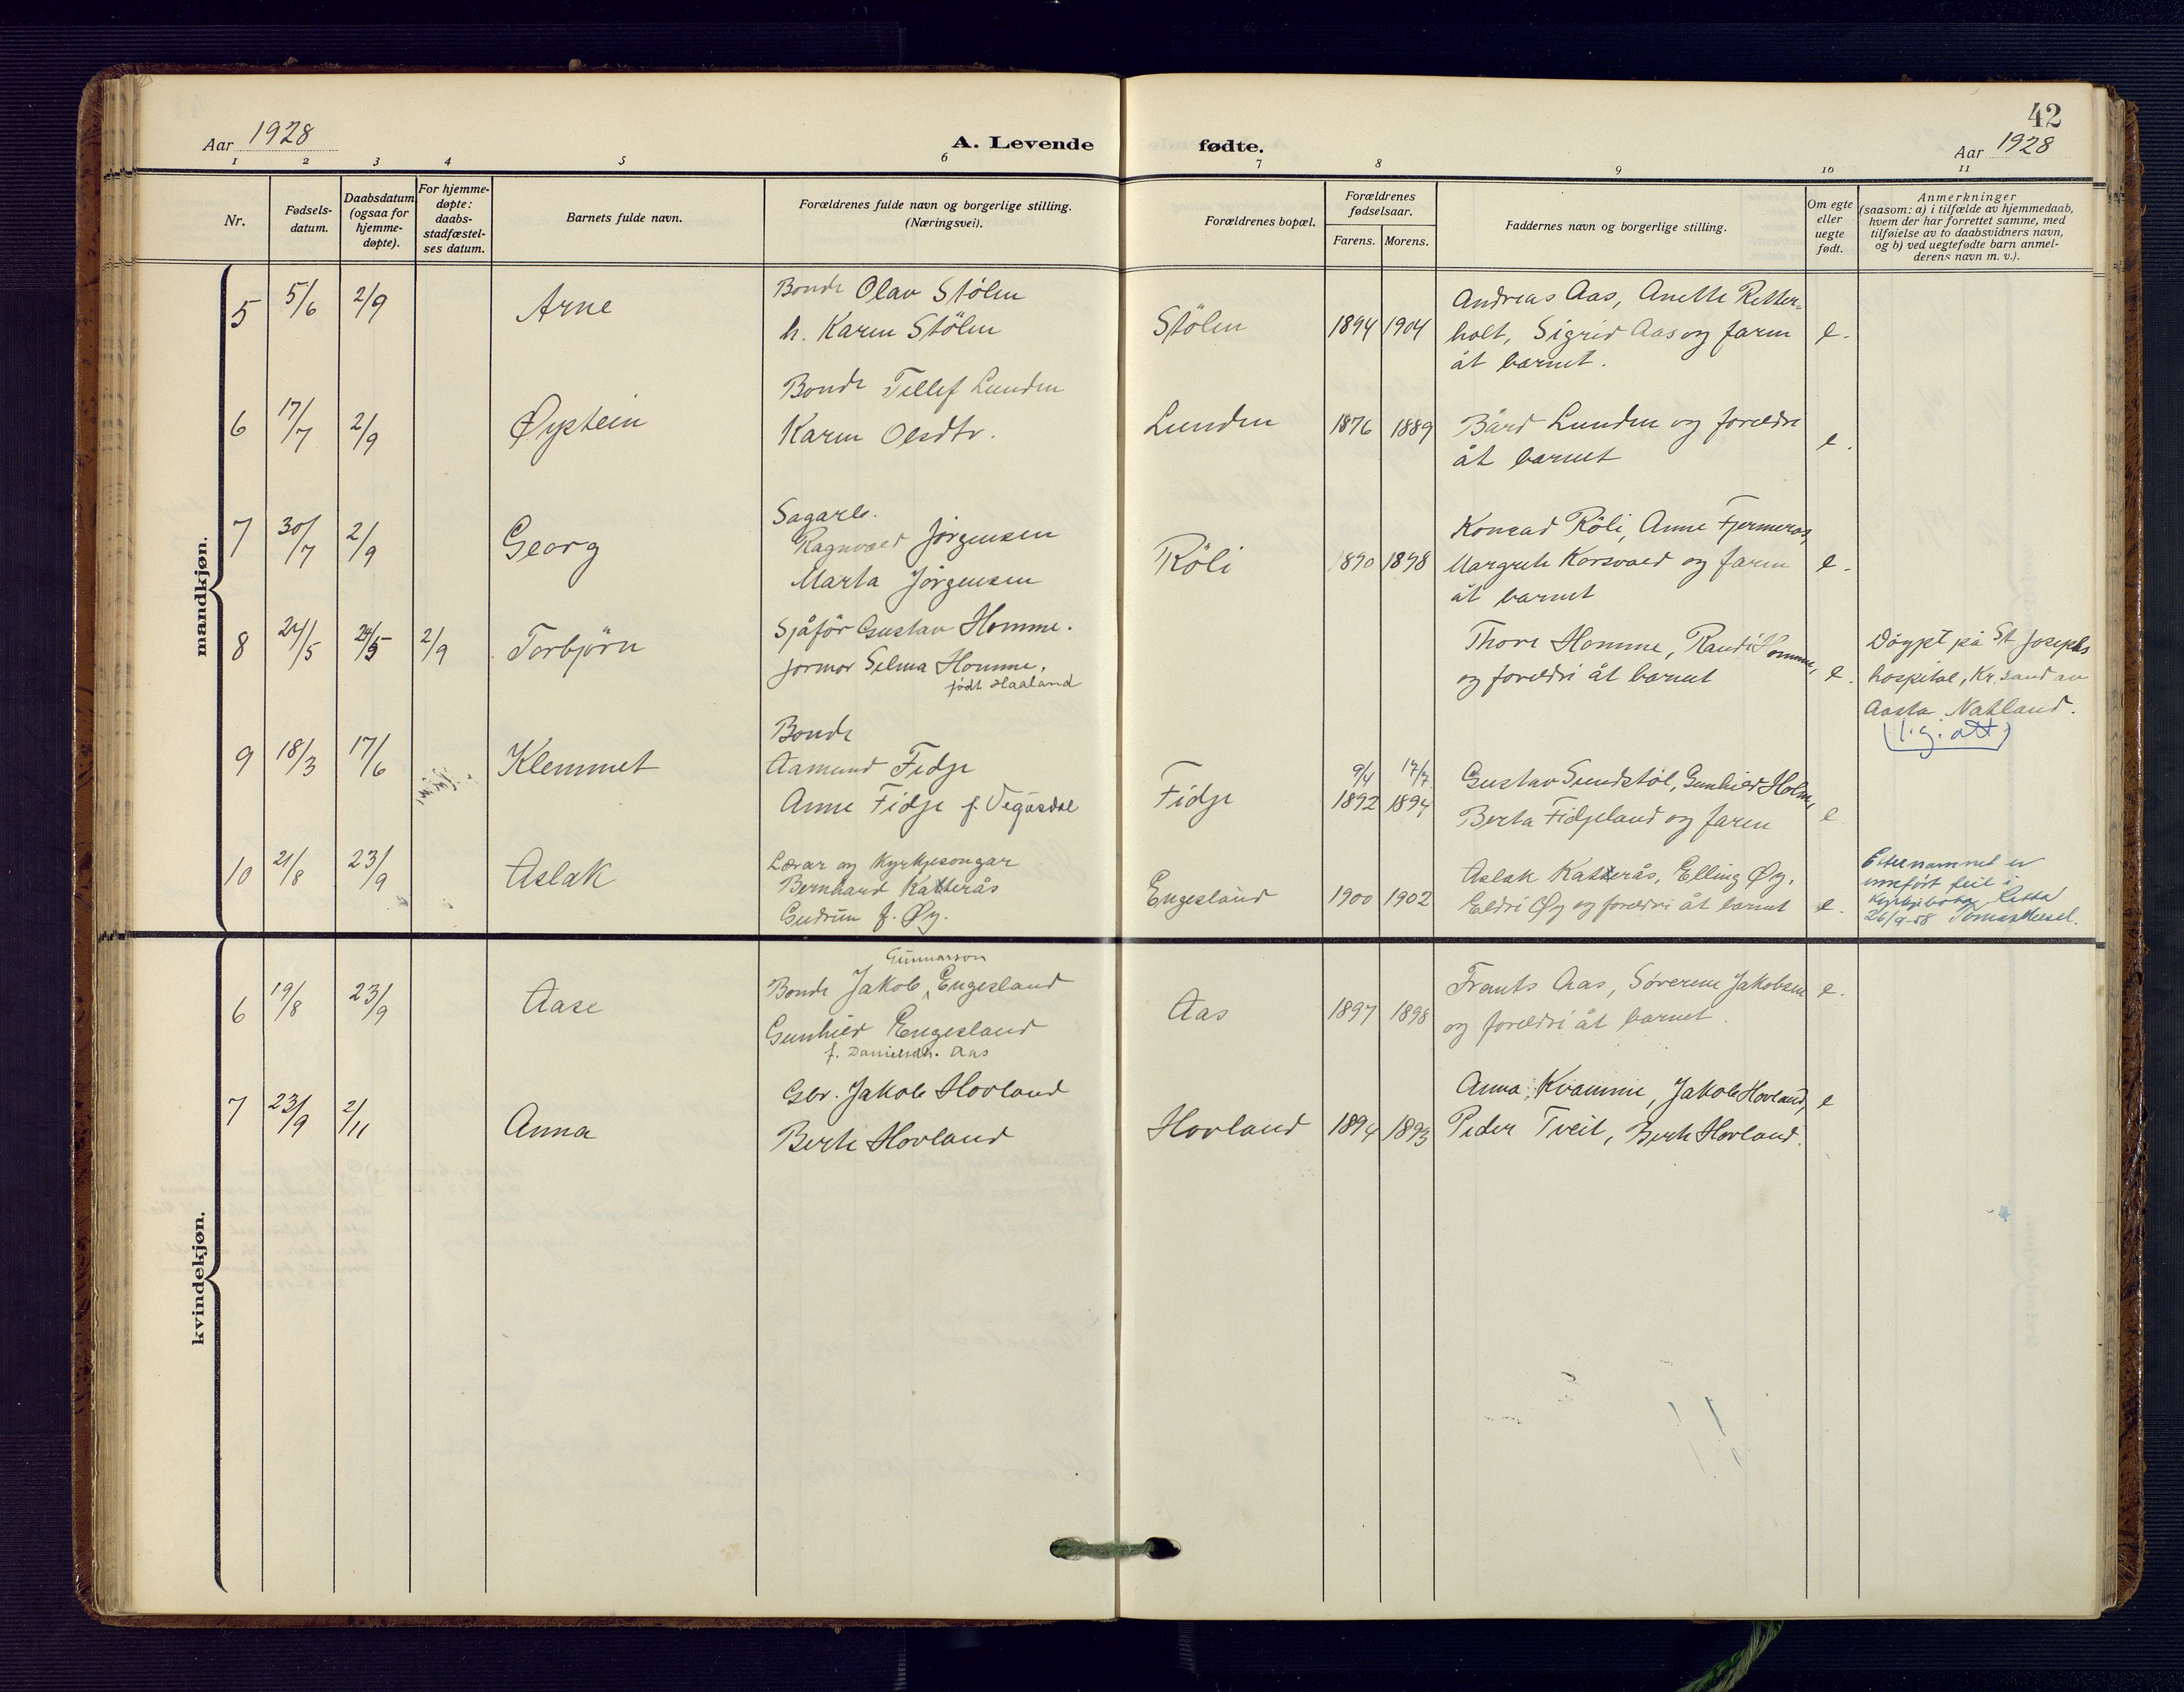 42
Aar 1928
A. Levende fødte.
Aar 1928
1 2 3 4 5 6 7 8 9 10 11
Nr.
Fødsels-
datum.
Daabsdatum
(ogsaa for
hjemme-
døpte).
For hjemme-
døpte:
daabs-
stadfæstel-
ses datum.
Barnets fulde navn.
Forældrenes fulde navn og borgerlige stilling.
(Næringsvei).
Forældrenes bopæl.
Forældrenes
fødselsaar.
Farens. Morens.
Faddernes navn og borgerlige stilling.
Om egte
eller
uegte
født.
Anmerkninger
(saasom: a) i tilfælde av hjemmedaab,
hvem der har forrettet samme, med
tilføielse av to daabsvidners navn,
og b) ved uegtefødte barn anmel-
derens navn m. v.).
mandkjøn.
5 5/6 2/9 Arne
Bonde Olav Stølen
h. Karen Stølen
Stølen 1894 1904
Andreas Aas, Anette Retter-
holt, Sigrid Aas og faren
åt barnet.
e.
6 17/7 2/9 Øystein
Bonde Tellef Lunden
Karen Olsdtr.
Lunden 1876 1889
Bård Lunden og foreldri
åt barnet
e.
7 30/7 2/9 Georg
Sagarb.
Ragnvald Jørgensen
Marta Jørgensen
Röli 1890 1898
Konrad Röli, Anne Fjermeros,
Margrete Korsvald og faren
åt barnet
e.
8 24/5 24/5 2/9 Torbjörn
Sjåför Gustav Homme.
jormor Selma Homme,
født Haaland
Thore Homme, Randi Homme,
og foreldri åt barnet
e.
Döypt på St. Josephs
hospital, Kr.sand av
Aasta Natland.
9 18/3 17/6 Klemmet
Bonde
Aamund Fidje
Anne Fidje f. Vegusdal
Fidje
9/4 1892
17/7 1894
Gustav Sundstöl, Gunhild Holm,
Berta Fidjeland og faren
e
10 21/8 23/9 Aslak
Lærar og Kyrkjesongar
Bernhard Katterås
Gudrun f. Øy.
Engesland 1900 1902
Aslak Katterås, Elling Øy.
Eldri Øy og foreldri åt barnet
e.
Etternamnet er
innført feil i
Kyrkjeboka. Retta
26/9-58
kvindekjøn.
6 19/8 23/9 Aase
Gunnarson
Bonde Jakob Engesland
Gunhild Engesland
f. Danielsdtr. Aas
Aas 1897 1898
Frants Aas, Söverene Jakobsen
og foreldri åt barnet.
e.
7 23/9 2/11 Anna
Gbr. Jakob Hovland
Berte Hovland
Hovland 1894 1893
Anna Kvamme, Jakob Hovland,
Peder Tveit, Berte Hovland.
e